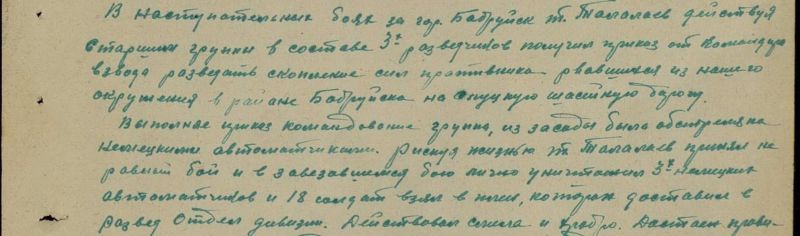 В наступательных боях за гор. Бабруйск т. Талалаев действуя
старшим группы в составе 3х разведчиков получил приказ от командира
взвода разведать скопление сил противника рвавшихся из нашего
окружения в районе Бабруйска на Слуцкую шассейную дорогу.
Выполняя приказ командования группа, из засады была обстреляна
немецкими автоматчиками. Рискуя жизнью т. Талалаев принял не
равный бой и в завезавшемся бою лично уничтожил 3х немецких
автоматчиков и 18 солдат взял в плен, которых доставил в
развед Отдел дивизии. Действовал смела и храбро. Достоен прави-